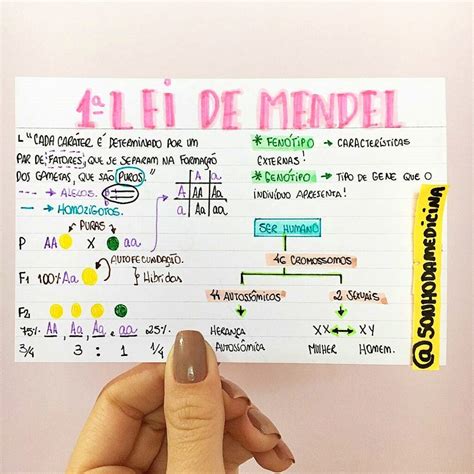 1ª LEI DE MENDEL
L "CADA CARÁTER É DETERMINADO POR UM
PAR DE FATORES, QUE SE SEPARAM NA FORMAÇÃO
DOS GAMETAS, QUE SÃO PUROS."
--→ ALELOS.
--→ HOMOZIGOTOS.
A a
A AA Aa
a Aa aa
* FENÓTIPO → CARACTERÍSTICAS
EXTERNAS!
* GENÓTIPO → TIPO DE GENE QUE O
INDIVÍDUO APRESENTA!
PURAS
P AA X aa
AUTOFECUNDAÇÃO
F1 100% Aa } Híbridos
F2
75% AA, Aa, Aa e aa 25%
3/4 3 : 1 1/4
SER HUMANO
46 CROMOSSOMOS
44 AUTOSSÔMICOS 2 SEXUAIS
HERANÇA XX ↔ XY
AUTOSSÔMICA MULHER HOMEM.
@SONHODAMEDICINA